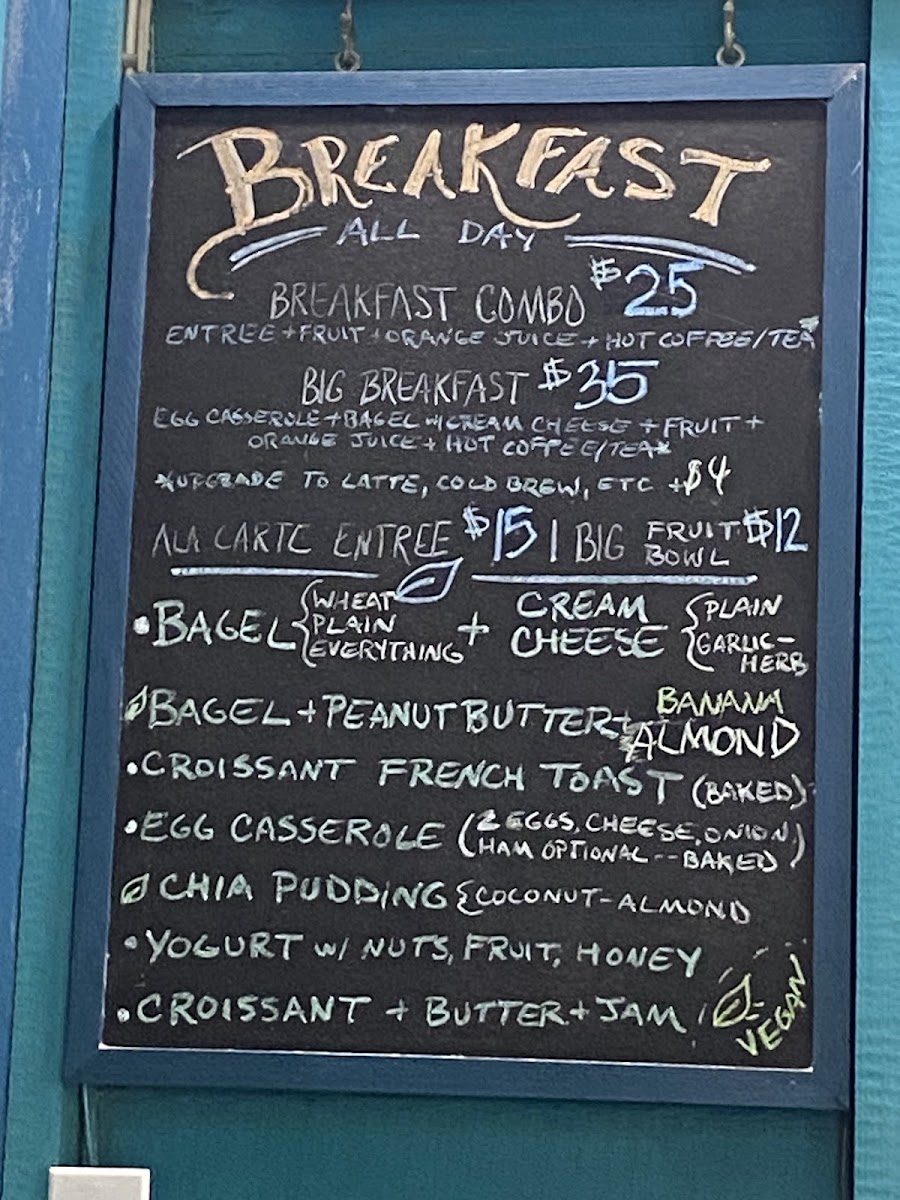 BREAKFAST
ALL DAY
BREAKFAST COMBO $25
ENTREE + FRUIT + ORANGE JUICE + HOT COFFEE/TEA
BIG BREAKFAST $35
EGG CASSEROLE + BAGEL W/CREAM CHEESE + FRUIT +
ORANGE JUICE + HOT COFFEE/TEA*
*UPGRADE TO LATTE, COLD BREW, ETC +$4
ALA CARTE ENTREE $15 | BIG FRUIT BOWL $12
• BAGEL { WHEAT PLAIN EVERYTHING + CREAM CHEESE { PLAIN GARLIC-HERB
BAGEL + PEANUT BUTTER + BANANA ALMOND
• CROISSANT FRENCH TOAST (BAKED)
• EGG CASSEROLE (2 EGGS, CHEESE, ONION, HAM OPTIONAL -- BAKED)
CHIA PUDDING { COCONUT-ALMOND
• YOGURT W/ NUTS, FRUIT, HONEY
• CROISSANT + BUTTER + JAM
= VEGAN